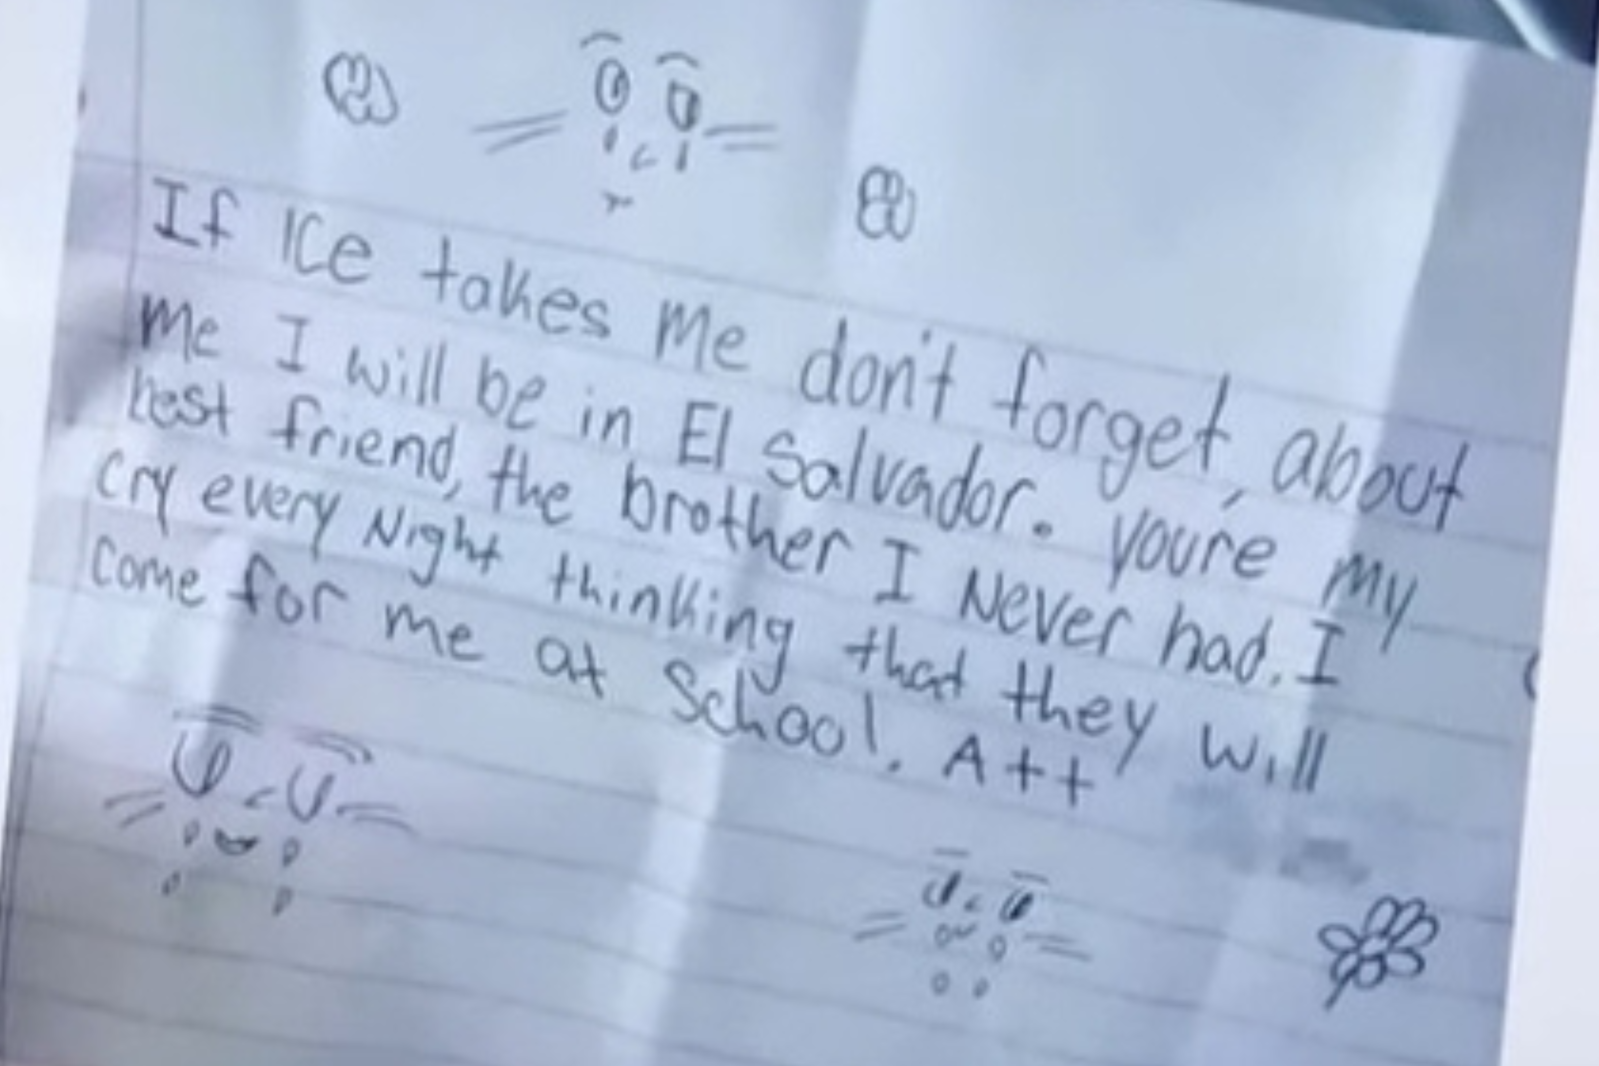 If ICe takes Me don't forget, about
Me I will be in El Salvador. You're My
best friend, the brother I Never had. I
Cry every Night thinking that they will
Come for me at School. A++